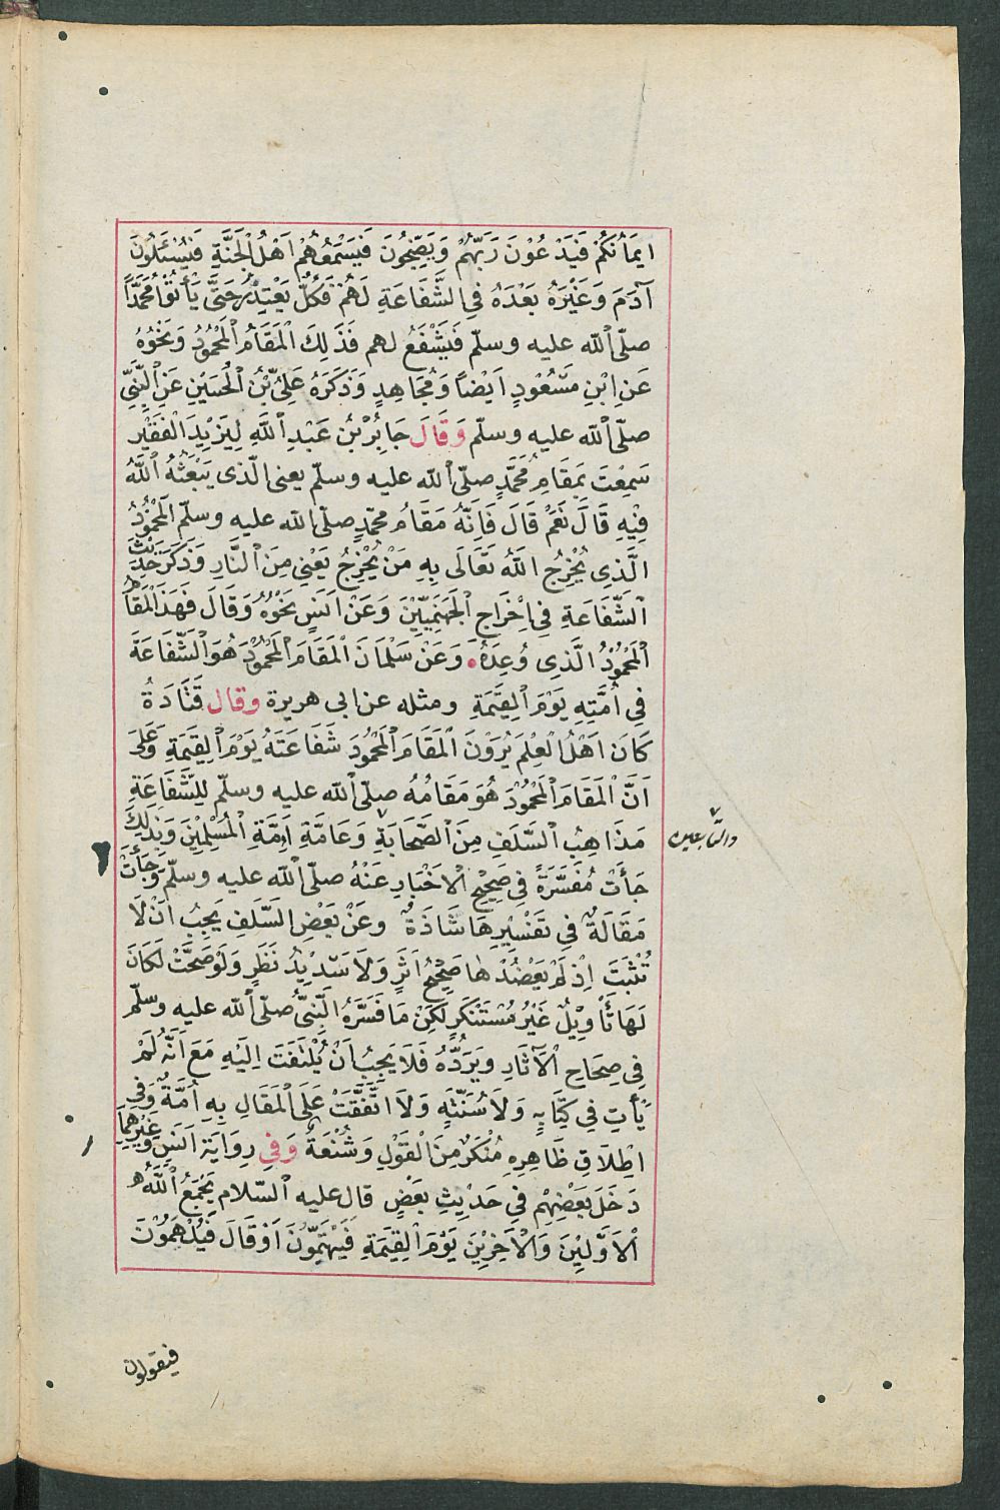 ايمَانُكُم فَيَدْعُوْنَ رَبَّهُمْ وَيَضِجُّونَ فَيَسْمَعُهُمْ اَهْلُ الْجَنَّةِ فَيَسْئَلُوْنَ
آدَمَ وَغَيْرَهُ بَعْدَهُ فِي الشَّفَاعَةِ لَهُمْ فَكُلٌّ يَعْتَذِرُ حَتَّى يَأْتُوْا مُحَمَّدًا
صلّى الله عليه وسلّم فَيَشْفَعُ لهم فَذَلِكَ الْمَقَامُ الْمَحْمُوْدُ وَنَحْوُهُ
عَنِ ابْنِ مَسْعُوْدٍ اَيْضًا وَمُجَاهِدٍ وَذَكَرَهُ عَلِيُّ بْنُ الْحُسَيْنِ عَنِ النَّبِيِّ
صلّى الله عليه وسلّم وَقَالَ جَابِرُ بْنُ عَبْدِ اللهِ لِيَزِيْدَ الْفَقِيْرِ
سَمِعْتَ بِمَقَامِ مُحَمَّدٍ صلّى الله عليه وسلّم يعنى الّذى يَبْعَثُهُ اللهُ
فِيْهِ قَالَ نَعَمْ قَالَ فَاِنَّهُ مَقَامُ محمّدٍ صلّى الله عليه وسلّم الْمَحْمُوْدُ
الَّذِى يُخْرِجُ اللهُ تَعَالَى بِهِ مَنْ يُخْرِجُ يَعْنِي مِنَ النَّارِ وَذَكَرَ حَدِيْثَ
الشَّفَاعَةِ فِي اِخْرَاجِ الْجَهَنَّمِيِّيْنَ وَعَنْ اَنَسٍ نَحْوُهُ وَقَالَ فَهَذَا الْمَقَامُ
الْمَحْمُوْدُ الَّذِى وُعِدَهُ وَعَنْ سَلْمَانَ الْمَقَامَ الْمَحْمُوْدَ هُوَ الشَّفَاعَةَ
فِي اُمَّتِهِ يَوْمَ الْقِيَمَةِ ومثله عن ابى هريرة وقال قَتَادَةُ
كَانَ اَهْلُ الْعِلْمِ يُرَوْنَ الْمَقَامَ الْمَحْمُوْدَ شَفَاعَتَهُ يَوْمَ الْقِيَمَةِ وَعَلَى
اَنَّ الْمَقَامَ الْمَحْمُوْدَ هُوَ مَقَامُهُ صلّى الله عليه وسلّم لِلشَّفَاعَةِ
مَذَاهِبُ السَّلَفِ مِنَ الصَّحَابَةِ وَعَامَّةِ اَئِمَّةِ الْمُسْلِمِيْنَ وَبِذَلِكَ
والتّابعين
جَاءَتْ مُفَسَّرَةً فِي صَحِيْحِ الْاَخْبَارِ عَنْهُ صلّى الله عليه وسلّم وَجَاءَتْ
مَقَالَةٌ فِي تَفْسِيْرِهَا شَاذَةٌ وعَنْ بَعْضِ السَّلَفِ يَجِبُ اَنْ لَا
تُثْبَتَ اِذْ لَمْ يَعْضُدْهَا صَحِيْحُ اَثَرٍ وَلَا سَدِيْدُ نَظَرٍ وَلَوْ صَحَّتْ لَكَانَ
لَهَا تَأْوِيْلٌ غَيْرُ مُسْتَنْكَرٍ لَكِنْ مَا فَسَّرَهُ النَّبِيُّ صلّى الله عليه وسلّم
فِي صِحَاحِ الْآثَارِ وَيَرُدُّهُ فَلَا يَجِبُ اَنْ يُلْتَفَتَ اِلَيْهِ مَعَ اَنَّهُ لَمْ
يَأْتِ فِي كِتَابٍ وَلَا سُنَّتِهٍ وَلَا اتَّفَقَتْ عَلَى الْمَقَالِ بِهِ اُمَّةٌ وَفِي
اِطْلَاقِ ظَاهِرِهِ مُنْكَرٌ مِنَ الْقَوْلِ وَشُنْعَةٌ وَفِي رِوَايَةِ اَنَسٍ وَغَيْرِهِمَا
دَخَلَ بَعْضُهُمْ فِي حَدِيْثِ بَعْضٍ قال عليه السّلام يَجْمَعُ اللهُ
الْاَوَّلِيْنَ وَالْآخِرِيْنَ يَوْمَ الْقِيَمَةِ فَيَهْتَمُّوْنَ اَوْ قَالَ فَيُلْهَمُوْنَ
فيقولون